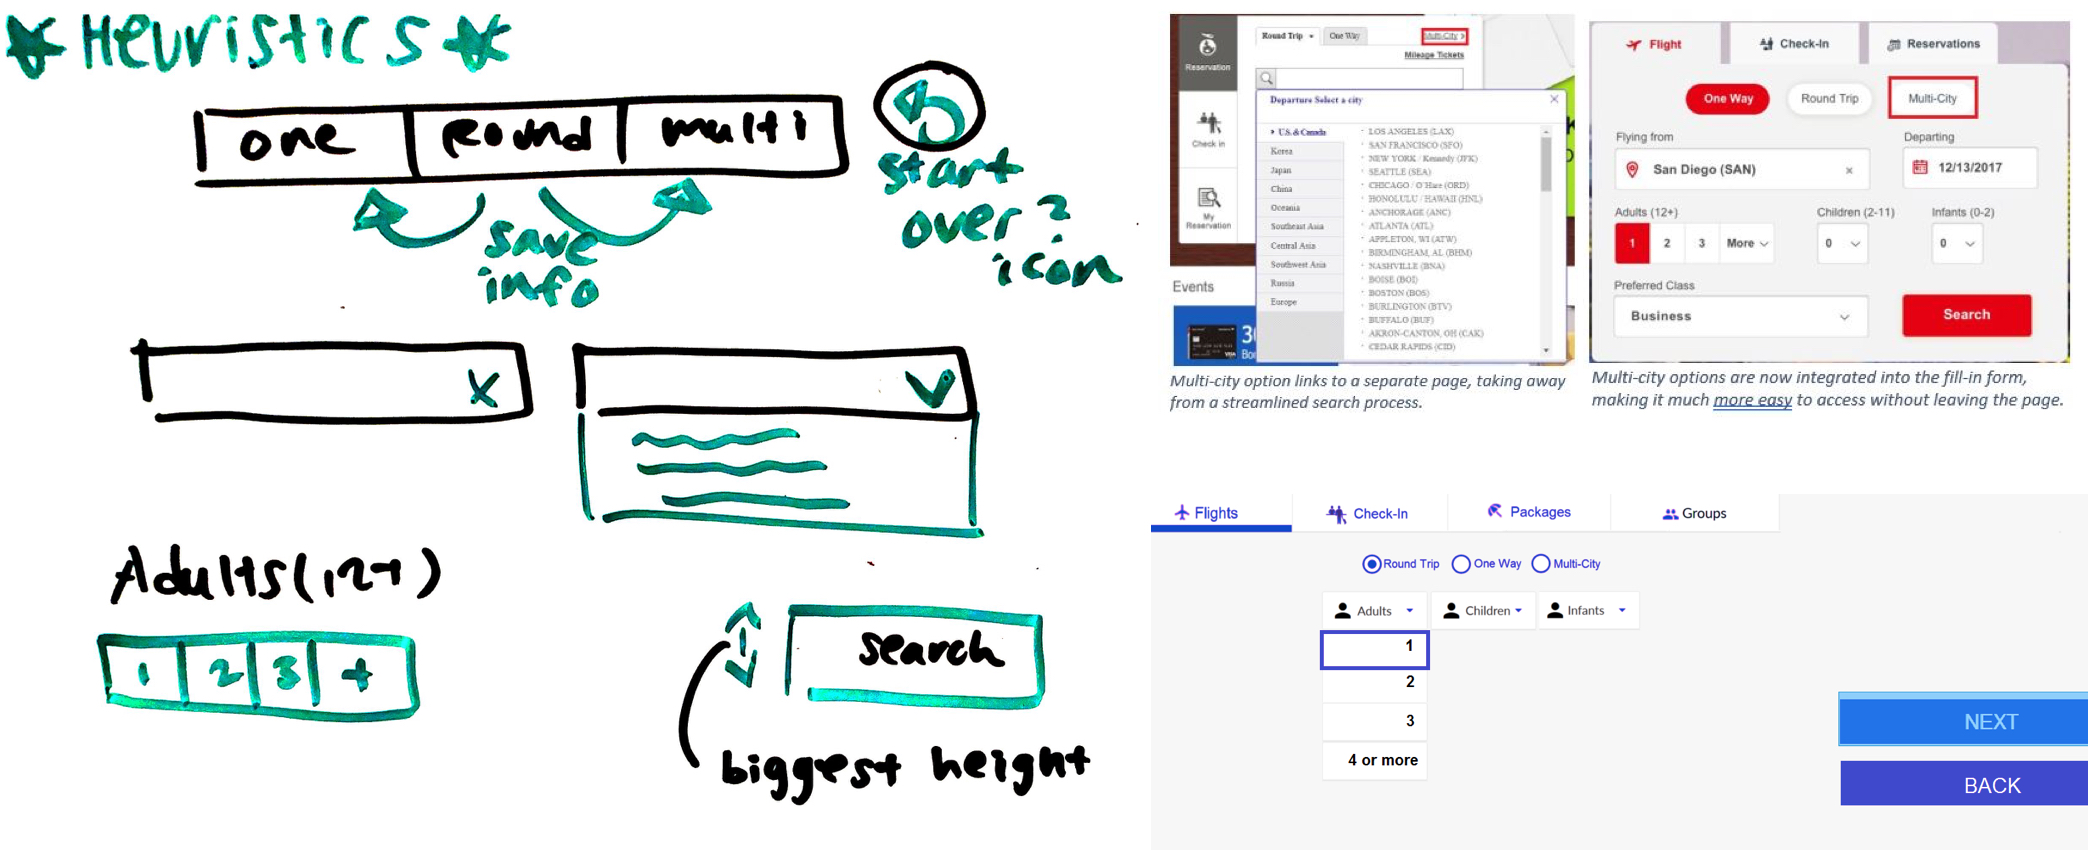 Heuristics
one round multi
start
over?
icon
save
info
x
Adults (12+)
1 2 3 +
search
biggest height
Reservation
Check in
My
Reservation
Round Trip One Way Multi-City >
Mileage Tickets
Departure Select a city
U.S. & Canada
Korea
Japan
China
Oceania
Southeast Asia
Central Asia
Southwest Asia
Russia
Europe
LOS ANGELES (LAX)
SAN FRANCISCO (SFO)
NEW YORK / Kennedy (JFK)
SEATTLE (SEA)
CHICAGO / O'Hare (ORD)
HONOLULU / HAWAII (HNL)
ANCHORAGE (ANC)
ATLANTA (ATL)
APPLETON, WI (ATW)
BIRMINGHAM, AL (BHM)
NASHVILLE (BNA)
BOISE (BOI)
BOSTON (BOS)
BURLINGTON (BTV)
BUFFALO (BUF)
AKRON-CANTON, OH (CAK)
CEDAR RAPIDS (CID)
Events
VISA
Multi-city option links to a separate page, taking away
from a streamlined search process.
Flight Check-In Reservations
One Way Round Trip Multi-City
Flying from Departing
San Diego (SAN) × 12/13/2017
Adults (12+) Children (2-11) Infants (0-2)
1 2 3 More 0 0
Preferred Class
Business Search
Multi-city options are now integrated into the fill-in form,
making it much more easy to access without leaving the page.
Flights Check-In Packages Groups
Round Trip One Way Multi-City
Adults Children Infants
1
2
3
4 or more
NEXT
BACK